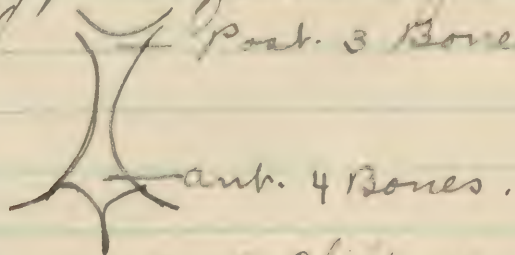 Post. 3 Bone
ant. 4 Bones.